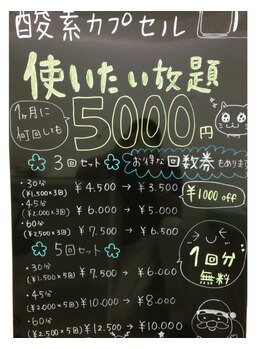 酸素カプセル
使いたい放題
1ヶ月に
何回しても
5000円
3回セット
お得な回数券もあります
・30分
(¥1,500×3回) ¥4.500 → ¥3.500
・45分
(¥2,000×3回) ¥6.000 → ¥5.000
・60分
(¥2,500×3回) ¥7.500 → ¥6.500
¥1000 off
5回セット
・30分
(¥1,500×5回) ¥7.500 → ¥6.000
・45分
(¥2,000×5回) ¥10.000 → ¥8.000
・60分
(¥2.500×5回) ¥12.500 → ¥10.000
1回分
無料